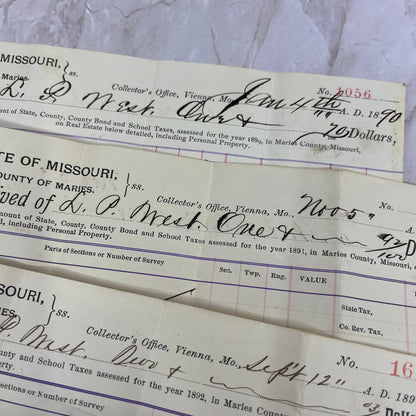 MISSOURI, } ss.
Maries.
Collector's Office, Vienna, Mo., Jan 4th A. D. 1890
No. 1056
L. P. West. One &
70 Dollars,
ount of State, County, County Bond and School Taxes, assessed for the year 1889, in Maries County, Missouri,
on Real Estate below detailed, including Personal Property.
TE OF MISSOURI, } ss.
COUNTY OF MARIES.
Collector's Office, Vienna, Mo., Nov 5"
No.
A.
ived of L. P. West. One &
92/100 D
mount of State, County, County Bond and School Taxes assessed for the year 1891, in Maries County, Missouri,
d, including Personal Property.
Parts of Sections or Number of Survey
Sec. Twp. Rng. VALUE
State Tax,
Co. Rev. Tax,
MISSOURI, } ss.
RIES.
Collector's Office, Vienna, Mo., Sept 12"
No. 16
A. D. 189
P. West. Two &
Dolla
unty and School Taxes assessed for the year 1892, in Maries County,
rty.
ctions or Number of Survey